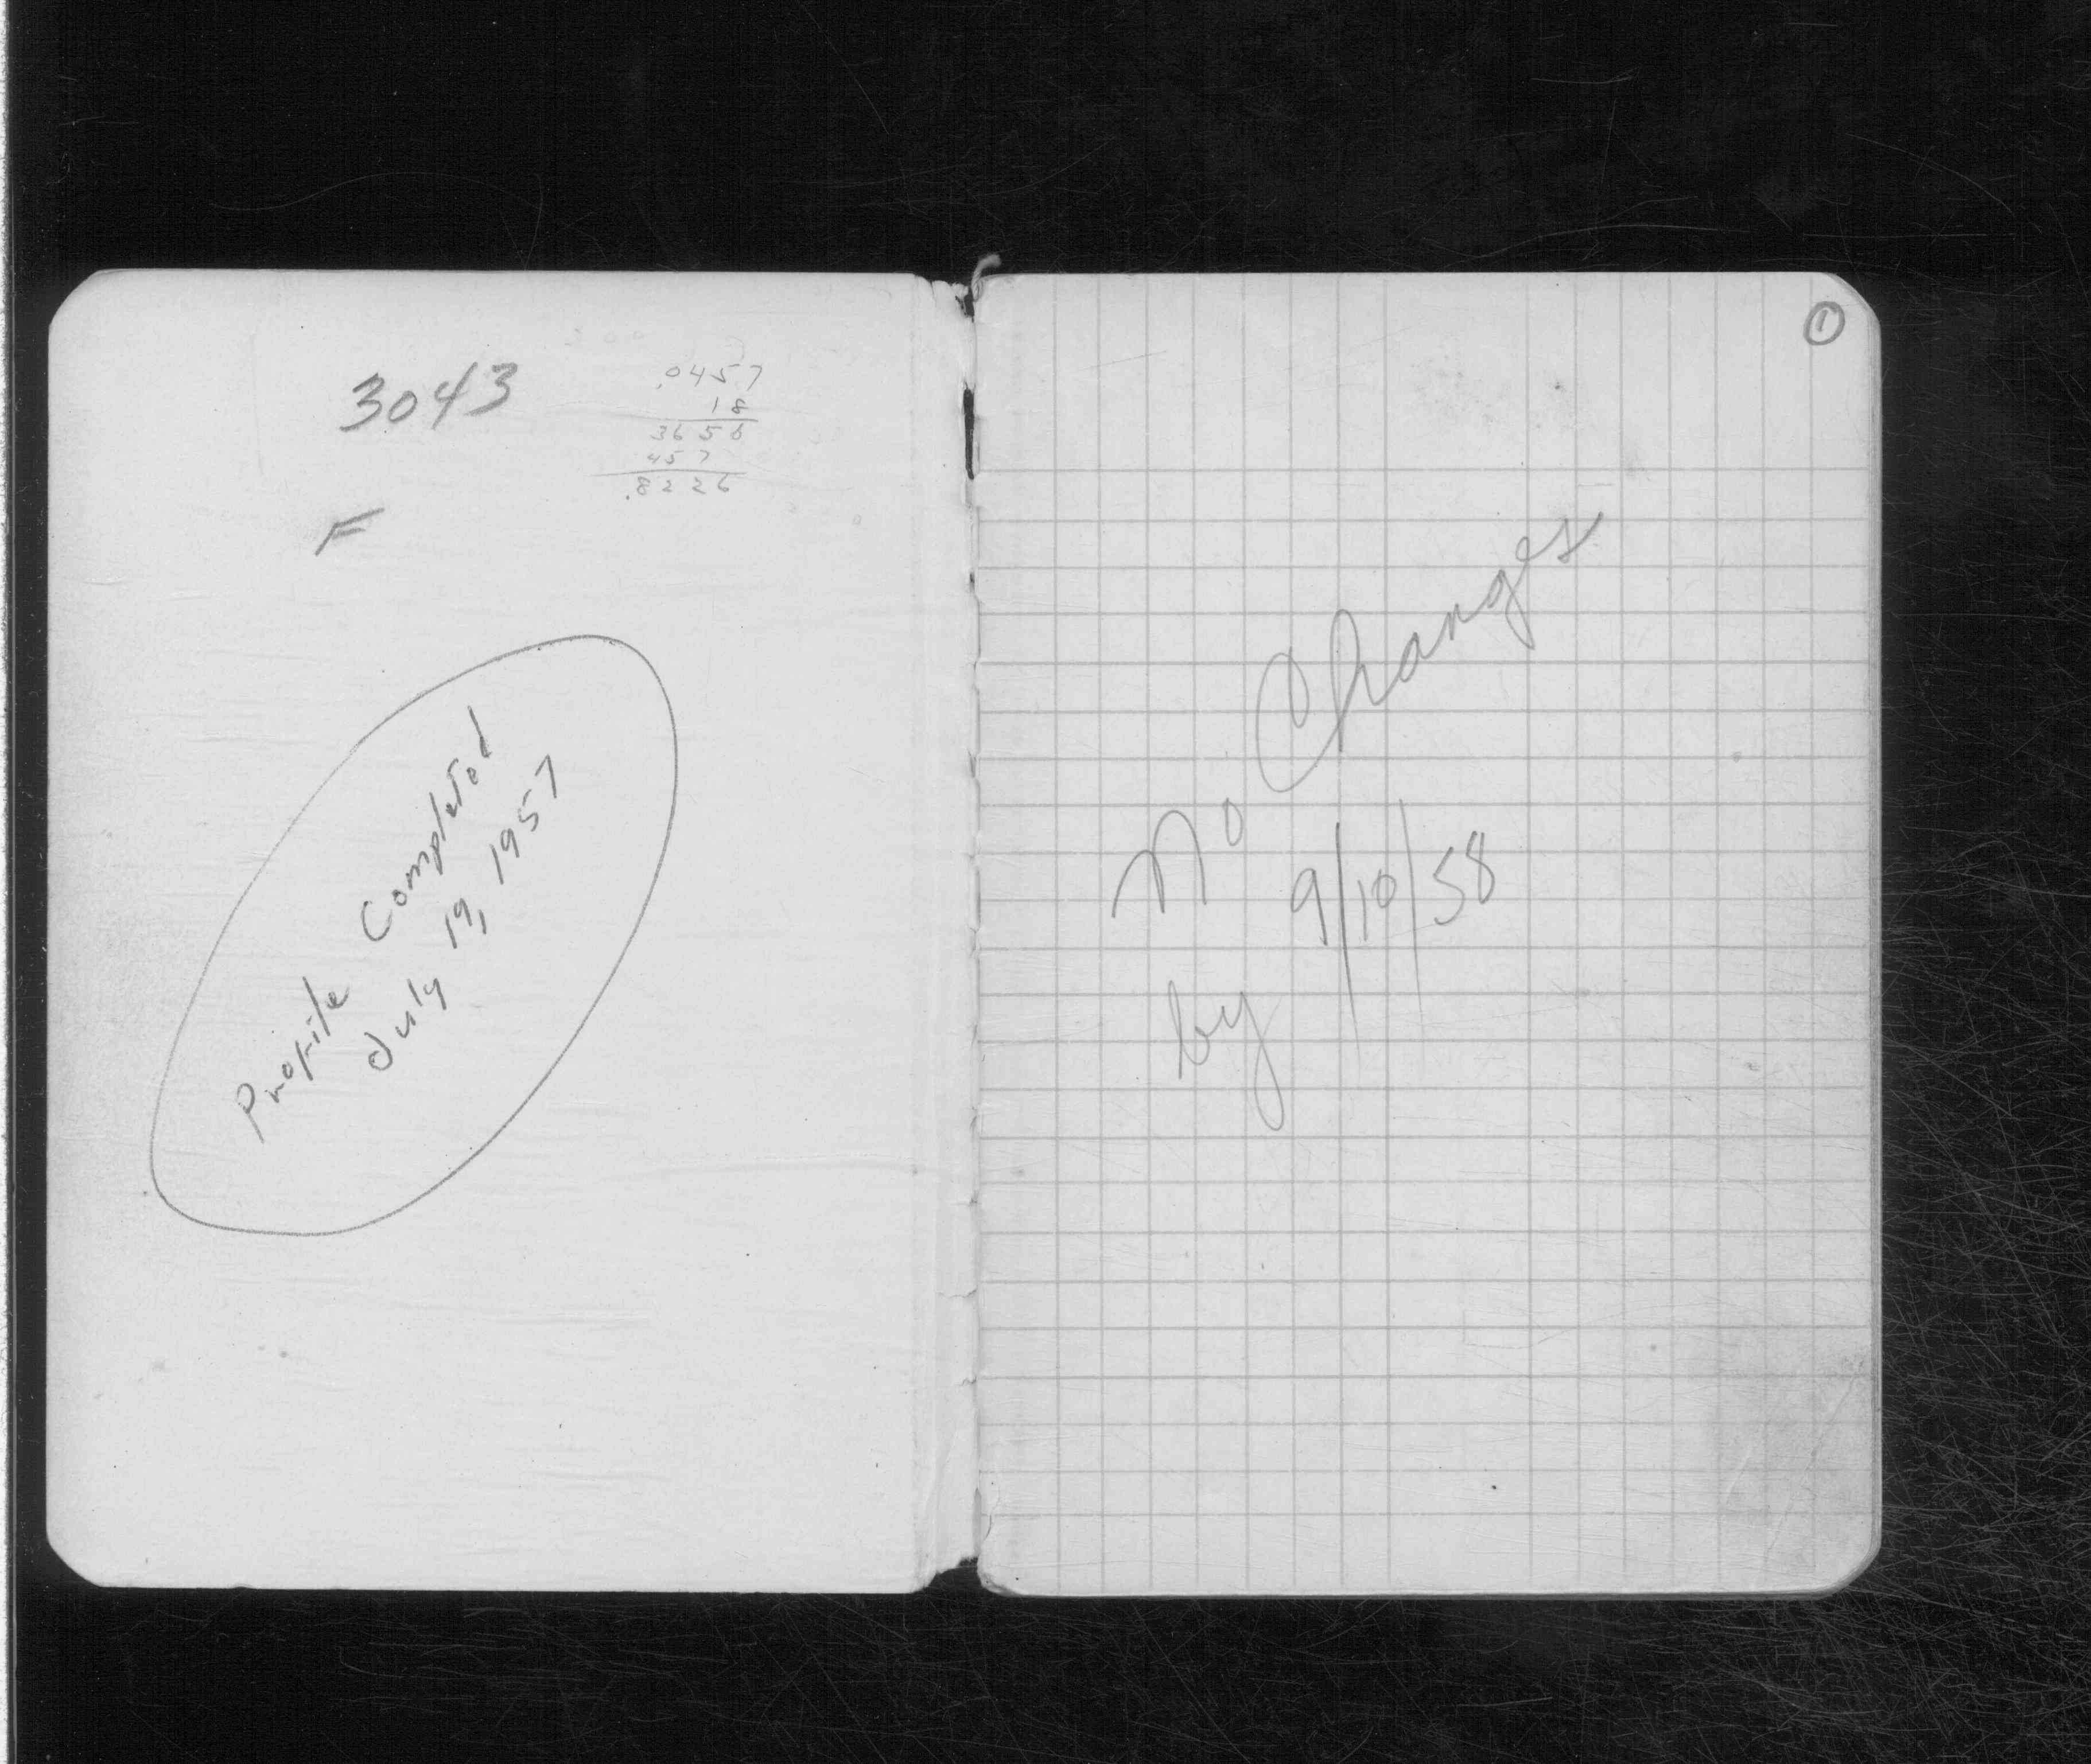 3043
.0457
18
3656
457
.8226
F
Profile Completed
July 19, 1957
1
No Changes
9/10/58
by